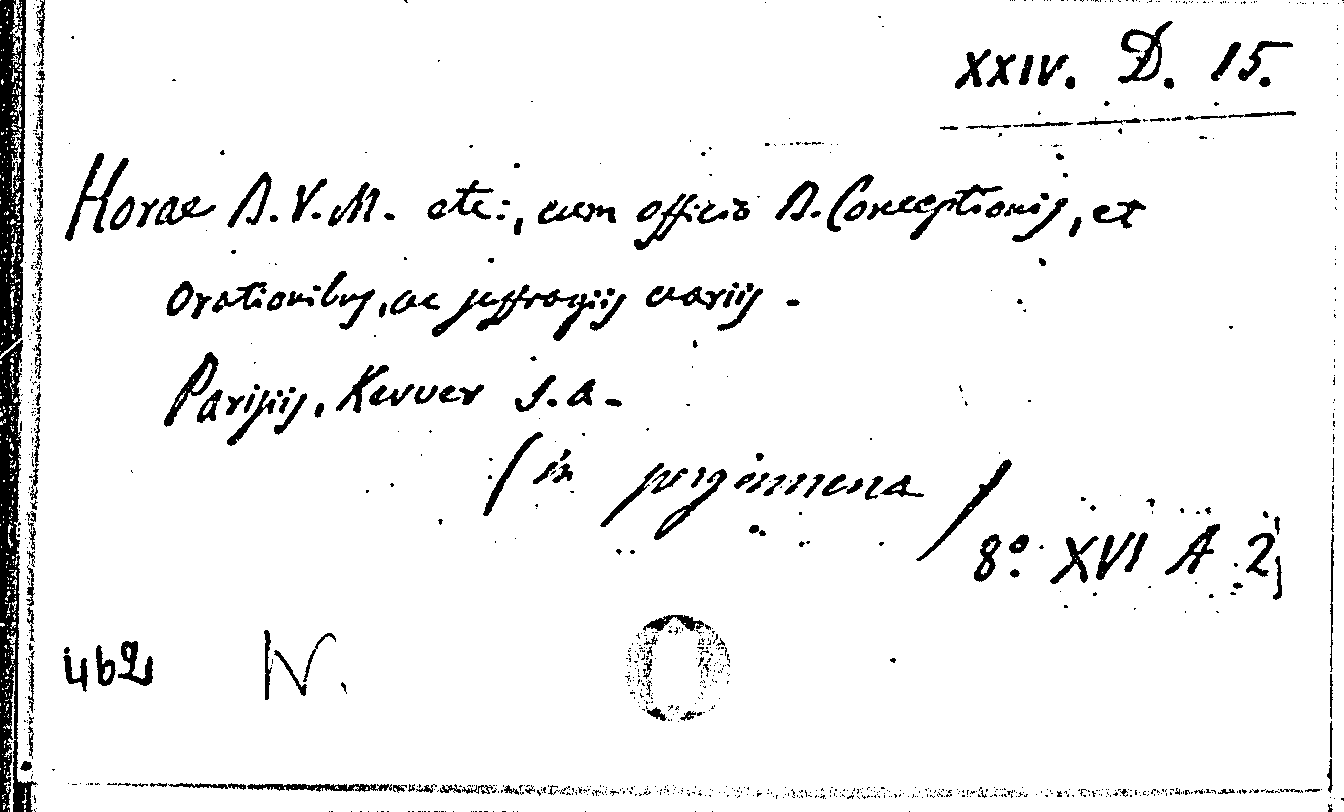 XXIV. D. 15.
Horae B.V.M. etc:, cum officio B. Conceptionis, et
Orationibus, ac suffragiis variis.
Parisiis, Kerver s.a.
(in pergamena)
8° XVI A 2
462 IV.